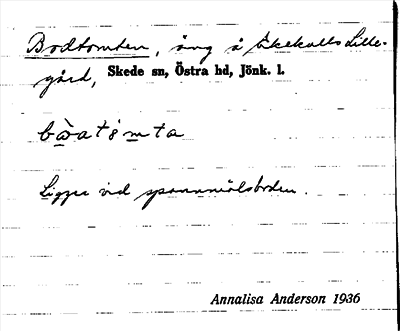 Bodtomten, äng å Äkekulls Lille-
gård, Skede sn, Östra hd, Jönk. l.
Ligger vid spannmålsboden.
Annalisa Anderson 1936